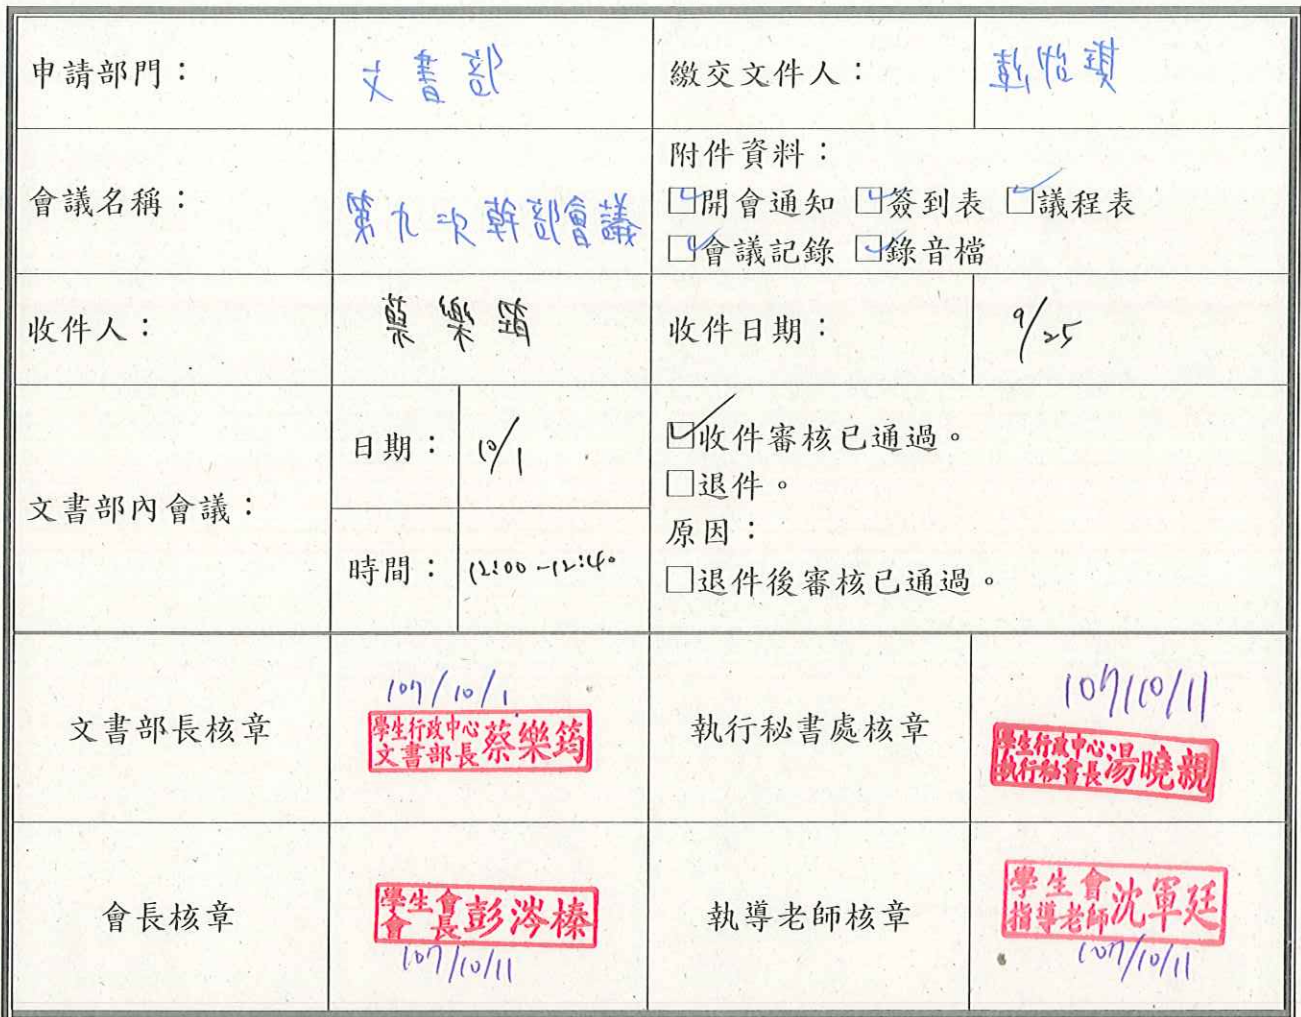 申請部門：
文書部
繳交文件人：
彭怡琪
會議名稱：
第九次幹部會議
附件資料：
☑開會通知 ☑簽到表 ☑議程表
☑會議記錄 ☑錄音檔
收件人：
蔡樂筠
收件日期：
9/25
文書部內會議：
日期：
10/1
時間：
12:00-12:40
☑收件審核已通過。
□退件。
原因：
□退件後審核已通過。
文書部長核章
107/10/1
學生行政中心
文書部長 蔡樂筠
執行秘書處核章
107/10/11
學生行政中心
執行秘書長 湯曉親
會長核章
學生會
會長 彭涔榛
107/10/11
執導老師核章
學生會
指導老師 沈軍廷
107/10/11